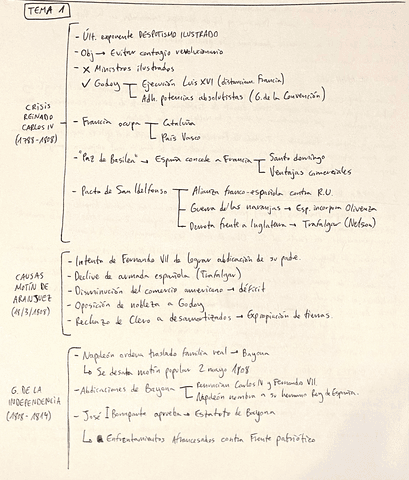 TEMA 1
- Últ. exponente DESPOTISMO ILUSTRADO
- Obj → Evitar contagio revolucionario
- X Ministros ilustrados
✓ Godoy
Ejecución Luis XVI (distancian Francia)
Adh. potencias absolutistas (G. de la Convención)
CRISIS
REINADO
CARLOS IV
(1788-1808)
- Francia ocupa
Cataluña
País Vasco
- "Paz de Basilea" → España concede a Francia
Santo domingo
Ventajas comerciales
- Pacto de San Ildelfonso
Alianza franco-española contra R.U.
Guerra de las naranjas → Esp. incorpora Olivenza
Derrota frente a Inglaterra → Trafalgar (Nelson)
CAUSAS
MOTÍN DE
ARANJUEZ
(18/3/1808)
- Intento de Fernando VII de lograr abdicación de su padre.
- Declive de armada española (Trafalgar)
- Disminución del comercio americano → déficit
- Oposición de nobleza a Godoy
- Rechazo de Clero a desamortizados → Expropiación de tierras.
G. DE LA
INDEPENDENCIA
(1808-1814)
- Napoleón ordena traslado familia real → Bayona
↳ Se desata motín popular 2 mayo 1808
- Abdicaciones de Bayona
renuncian Carlos IV y Fernando VII.
Napoleón nombra a su hermano Rey de España.
- José I Bonaparte aprueba → Estatuto de Bayona
↳ Enfrentamientos Afrancesados contra Frente patriótico